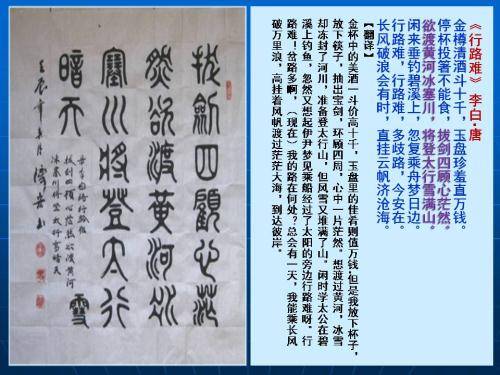 《行路难》 李白·唐
金樽清酒斗十千，玉盘珍羞直万钱。
停杯投箸不能食，拔剑四顾心茫然。
欲渡黄河冰塞川，将登太行雪满山。
闲来垂钓碧溪上，忽复乘舟梦日边。
行路难，行路难，多歧路，今安在。
长风破浪会有时，直挂云帆济沧海。
【翻译】
金杯中的美酒一斗价高十千，玉盘里的佳肴则值万钱·但是我放下杯子，
放下筷子，抽出宝剑，环顾四周，心中一片茫然。想渡过黄河，冰雪
却冻封了河川，准备登太行山，但风雪又堆满了山。闲时学太公在碧
溪上钓鱼，忽然又想起伊尹梦见乘船经过了太阳的旁边行路难呀。行
路难！岔路多啊，（现在）我的路在何处？总会有一天，我能乘长风
破万里浪，高挂着风帆渡过茫茫大海，到达彼岸。
拔劍四顧心茫
然欲渡黃河冰
塞川將登太行
雪
暗天
李白行路难
拔剑四顾心茫然欲渡黄河
冰塞川将登太行雪暗天